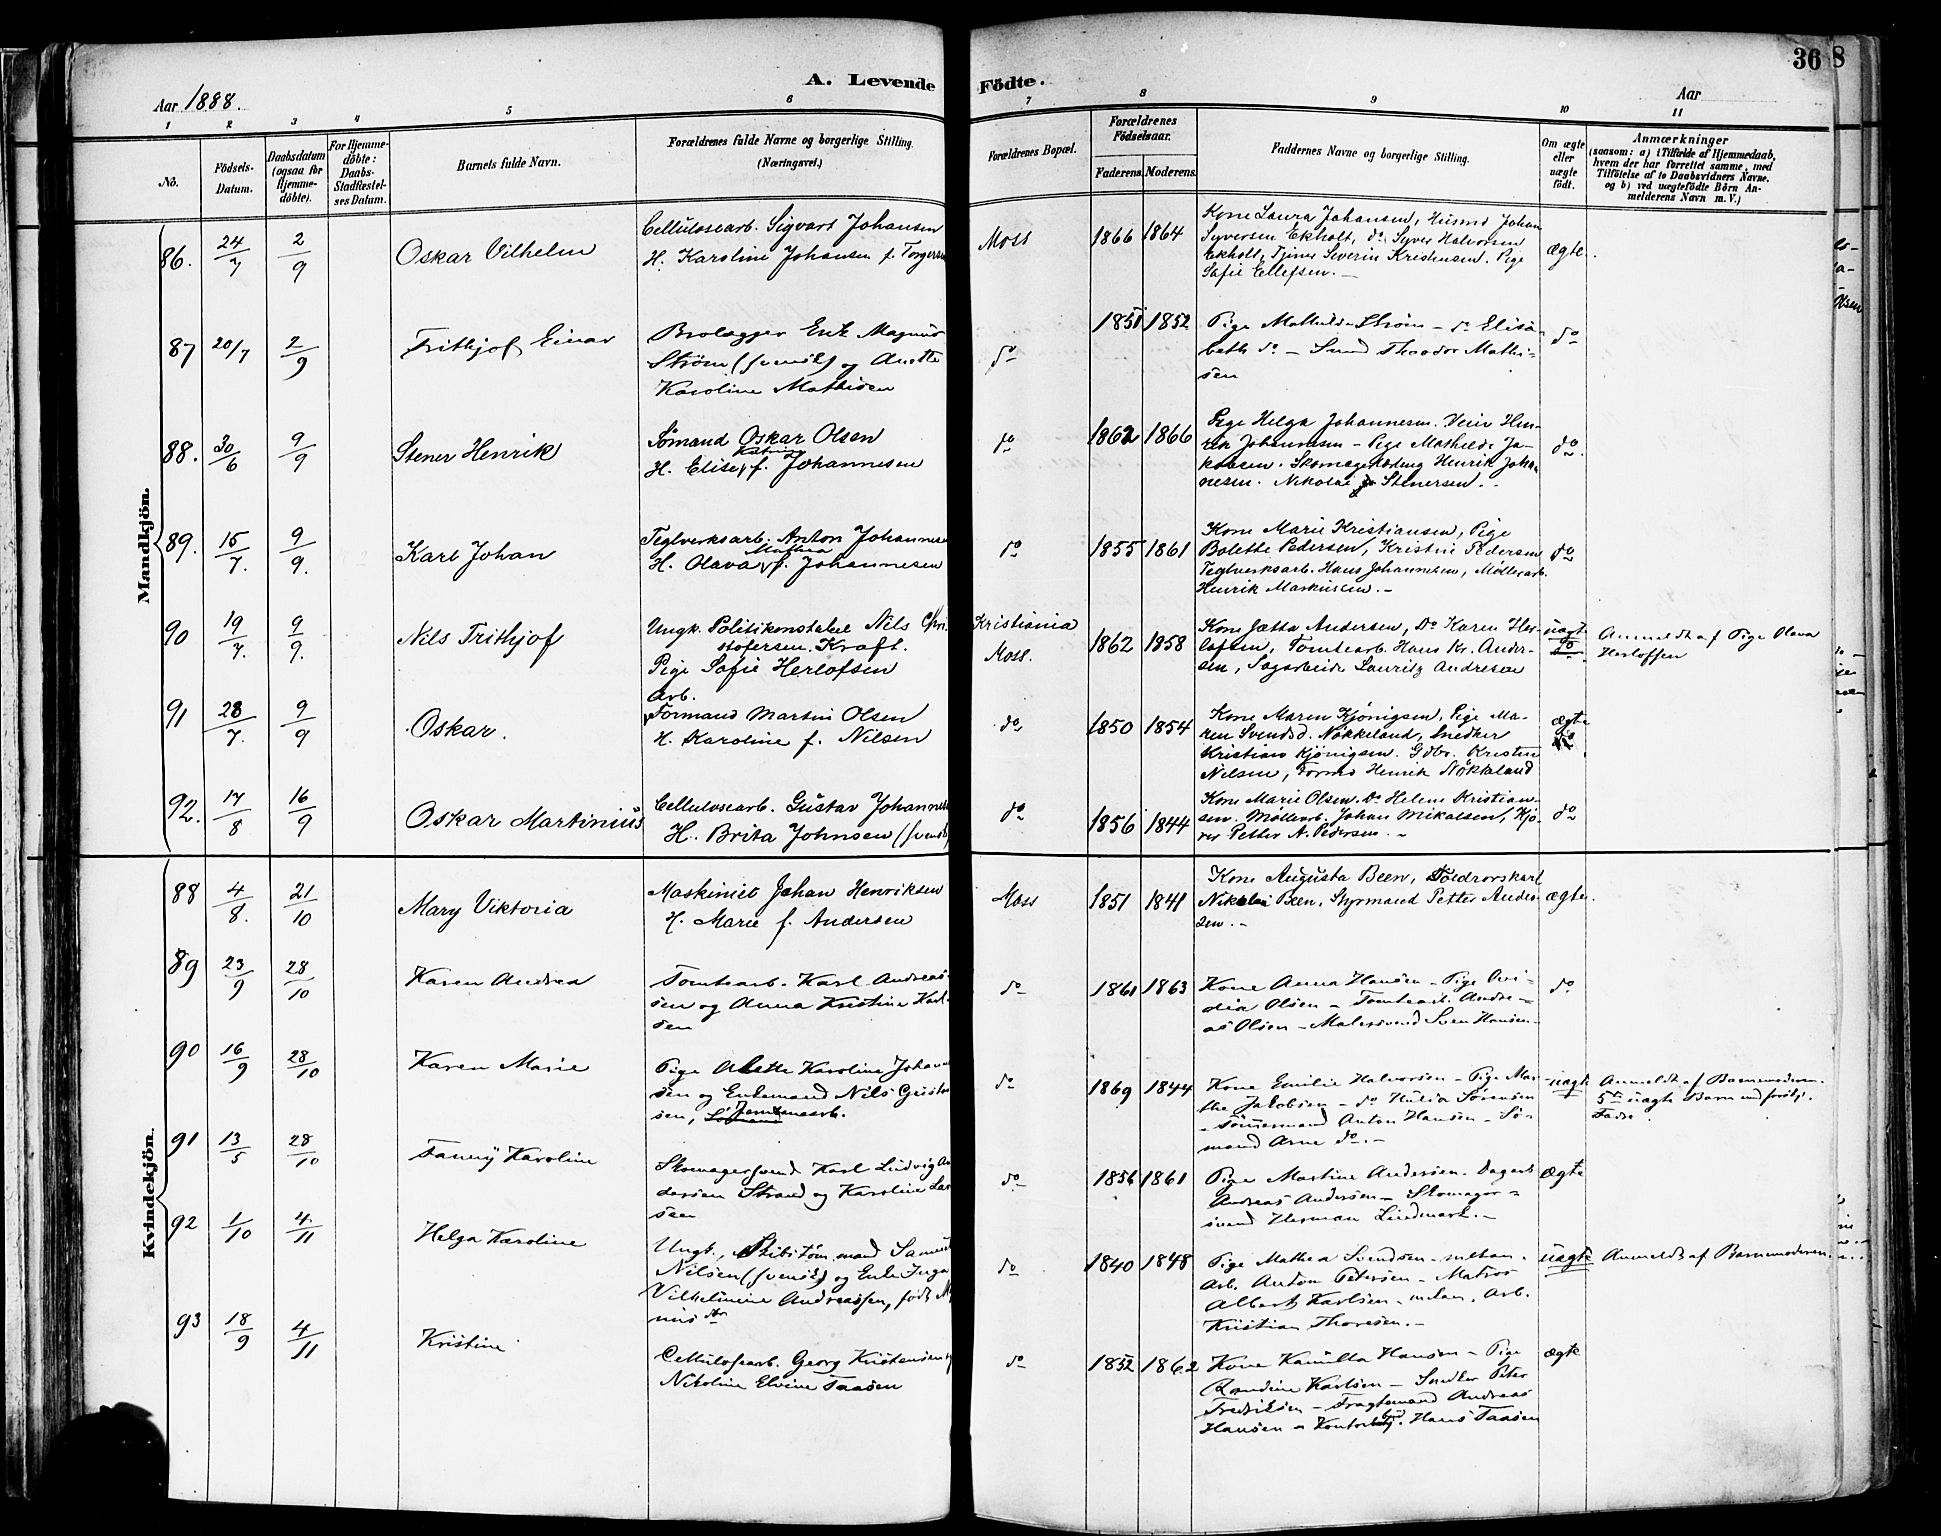 36
8
A. Levende
Födte.
Aar 1888.
Aar
1 2 3 4 5 6 7 8 9 10 11
No.
Födsels-
Datum.
Daabsdatum
(ogsaa for
Hjemme-
döbte).
For Hjemme-
döbte:
Daabs-
Stadfæstel-
ses Datum.
Barnets fulde Navn.
Forældrenes fulde Navne og borgerlige Stilling.
(Næringsvei.)
Forældrenes Bopæl.
Forældrenes
Födselsaar.
Faderens.
Moderens.
Faddernes Navne og borgerlige Stilling.
Om ægte
eller
uægte
födt.
Anmærkninger
(saasom: a) i Tilfælde af Hjemmedaab,
hvem der har forrettet samme, med
Tilföielse af to Daabsvidners Navne,
og b) ved uægtefödte Börn An-
melderens Navn m. V.)
Mandkjön.
86. 24/7 2/9 Oskar Vilhelm
Cellulosearb. Sigvart Johansen
H. Karoline Johansen f. Torgersen
Moss 1866 1864
Kone Laura Johansen, Husmd Johan
Syversen Ekholt, do Syver Halvorsen
Ekholt, Tjener Severin Kristensen. Pige
Safie Ellefsen. –
ægte.
87 20/7 2/9 Frithjof Einar
Brolægger Erik Magnus
Strøm (svensk) og Anette
Karoline Mathisen
do 1851 1852
Pige Mathilde Strøm – do Elisa-
beth do – Smed Theodor Mathi-
sen
do
88. 30/6 9/9 Stener Henrik
Sömand Oskar Olsen
Katrine
H. Elise f. Johannesen
do 1862 1866
Pige Helga Johannesen. Veier Hen-
rik Johannesen – Pige Mathilde Ja-
kobsen. Skomagerlærling Henrik Johan
nesen. Nikolai Stenersen. –
do
89. 15/7. 9/9. Karl Johan
Teglverksarb. Anton Johannes
Mathea
H. Olava f. Johannesen
do 1855 1861
Kone Marie Kristiansen, Pige
Bolette Pedersen, Kristine Pedersen
Teglverksarb. Hans Johannesen, Møllerarb.
Henrik Markusen. –
do
90 19/7. 9/9. Nils Frithjof
Ungk. Politikonstabel Nils Chri
stofersen Kraft.
Pige Safie Herlofsen
Kristiania
Moss. 1862 1858
Kone Jætta Andersen, Do Karen Her-
lofsen, Tomtearb. Hans Kr. Ander-
sen, Sagarbeider Lauritz Andresen
uægte
do
Anmeldt af Pige Olava
Herloffen
91 28/7. 9/9 Oskar.
Arb.
Formand Martin Olsen
H. Karoline f. Nilsen
do 1850 1854
Kone Maren Kjönigsen, Pige Ma-
ren Svendsd. Nökkeland, Snedker
Kristian Kjönigsen. Gdbr. Kristen
Nilsen, Formd Henrik Nökkeland
ægte
92. 17/8 16/9 Oskar Martinius
Cellulosearb. Gustav Johannes
H. Brita Johnsen (svensk)
do 1856 1844
Kone Marie Olsen. Do Helene Kristian-
sen. Møllearb. Johan Mikalsen, Kjö-
rer Petter A. Pedersen. –
do
Kvindekjön.
88 4/8. 21/10 Mary Viktoria
Maskinist Johan Henriksen
H. Marie f. Andersen
Moss 1851 1841
Kone Augusta Been,
Nikolai Been, Styrmand Petter Ander-
sen. –
ægte.
89 23/9 28/10 Karen Andrea
Tomtearb. Karl Andreas-
sen og Anna Kristine Karl-
sen
do 1861 1863
Kone Anna Hansen – Pige Ovi-
dia Olsen – Tomtearb. Andre-
as Olsen – Malersvend Sven Hansen.
do
90 16/9 28/10 Karen Marie
Pige Anette Karoline Johan
sen og Enkemand Nils Gustav
sen,
do 1869 1844
Kone Emilie Halvorsen – Pige Mar-
the Jakobsen – do Hulda Sörensen
– Tömmermand Anton Hansen – Sö-
mand Arne do. –
uægte
Anmeldt af Barnemoderen.
5te uægte Barn
Fadre.
91 13/5 28/10 Fanny Karoline
Skomagersvend Karl Ludvig An
dersen Strand og Karoline Lar
sen
do 1856 1861
Pige Martine Andersen. Dagarb.
Andreas Andersen – Skomager-
svend Herman Lindmark. –
ægte
92 1/10 4/11 Helga Karoline
Ungk., Skibstöm. mand Samuel
Nilsen (svensk) og Enke Inga
Vilhelmine Andreassen, født M
nus dtr
do 1840 1848
Pige Mathea Svendsen – mekan.
Arb. Anton Petersen – Matros
Albert Karlsen – mekan. Arb.
Kristian Thoresen. –
uægte
Anmeldt af Barnemoderen.
93 18/9 4/11 Kristine
Cellulosearb. Georg Kristensen
Nikoline Elvine Taasen
do 1852 1862
Kone Kamilla Hansen – Pige
Randine Karlsen – Snedker Peter
Fredriksen – Fragtemand Andreas
Hansen – Hans Taasen
ægte